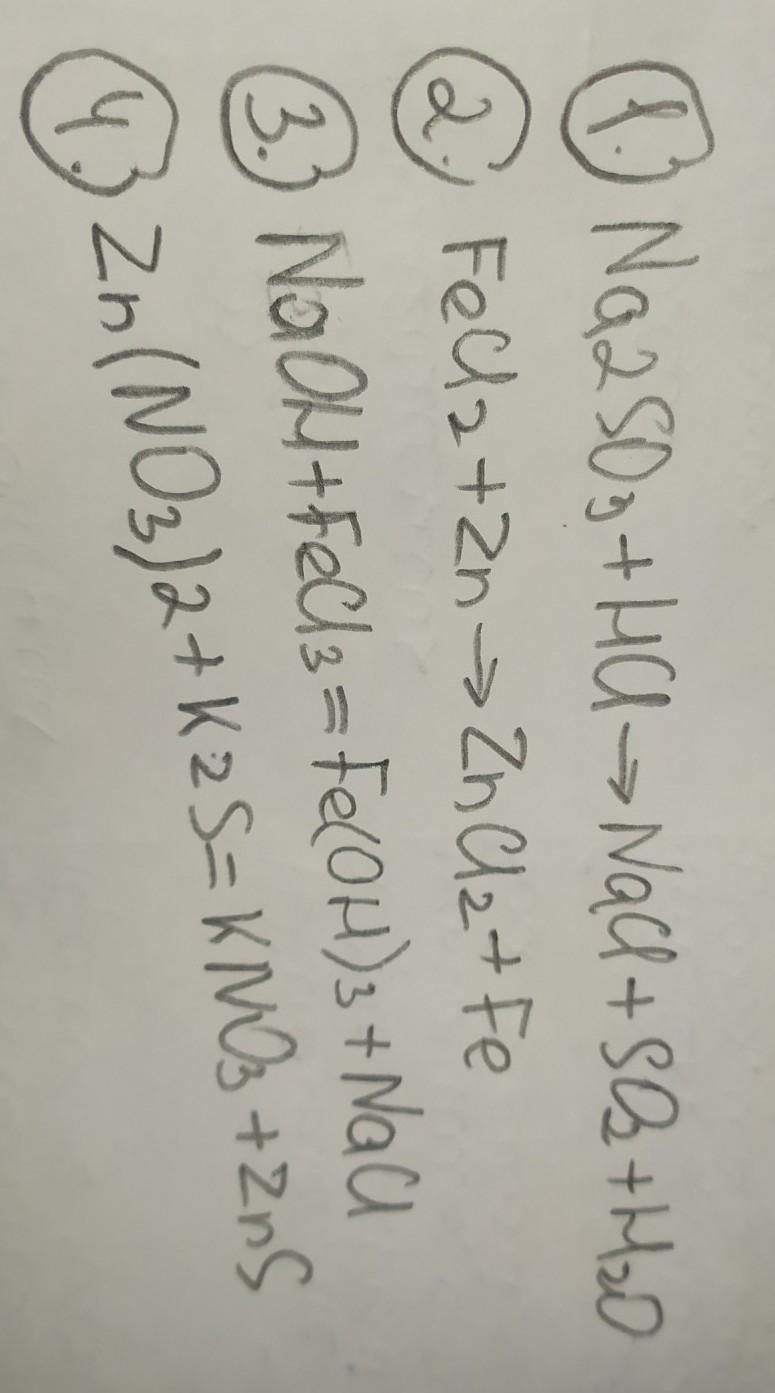 1. Na2SO3+HCl→NaCl+SO2+H2O
2. FeCl2+Zn→ZnCl2+Fe
3. NaOH+FeCl3=Fe(OH)3+NaCl
4. Zn(NO3)2+K2S=KNO3+ZnS